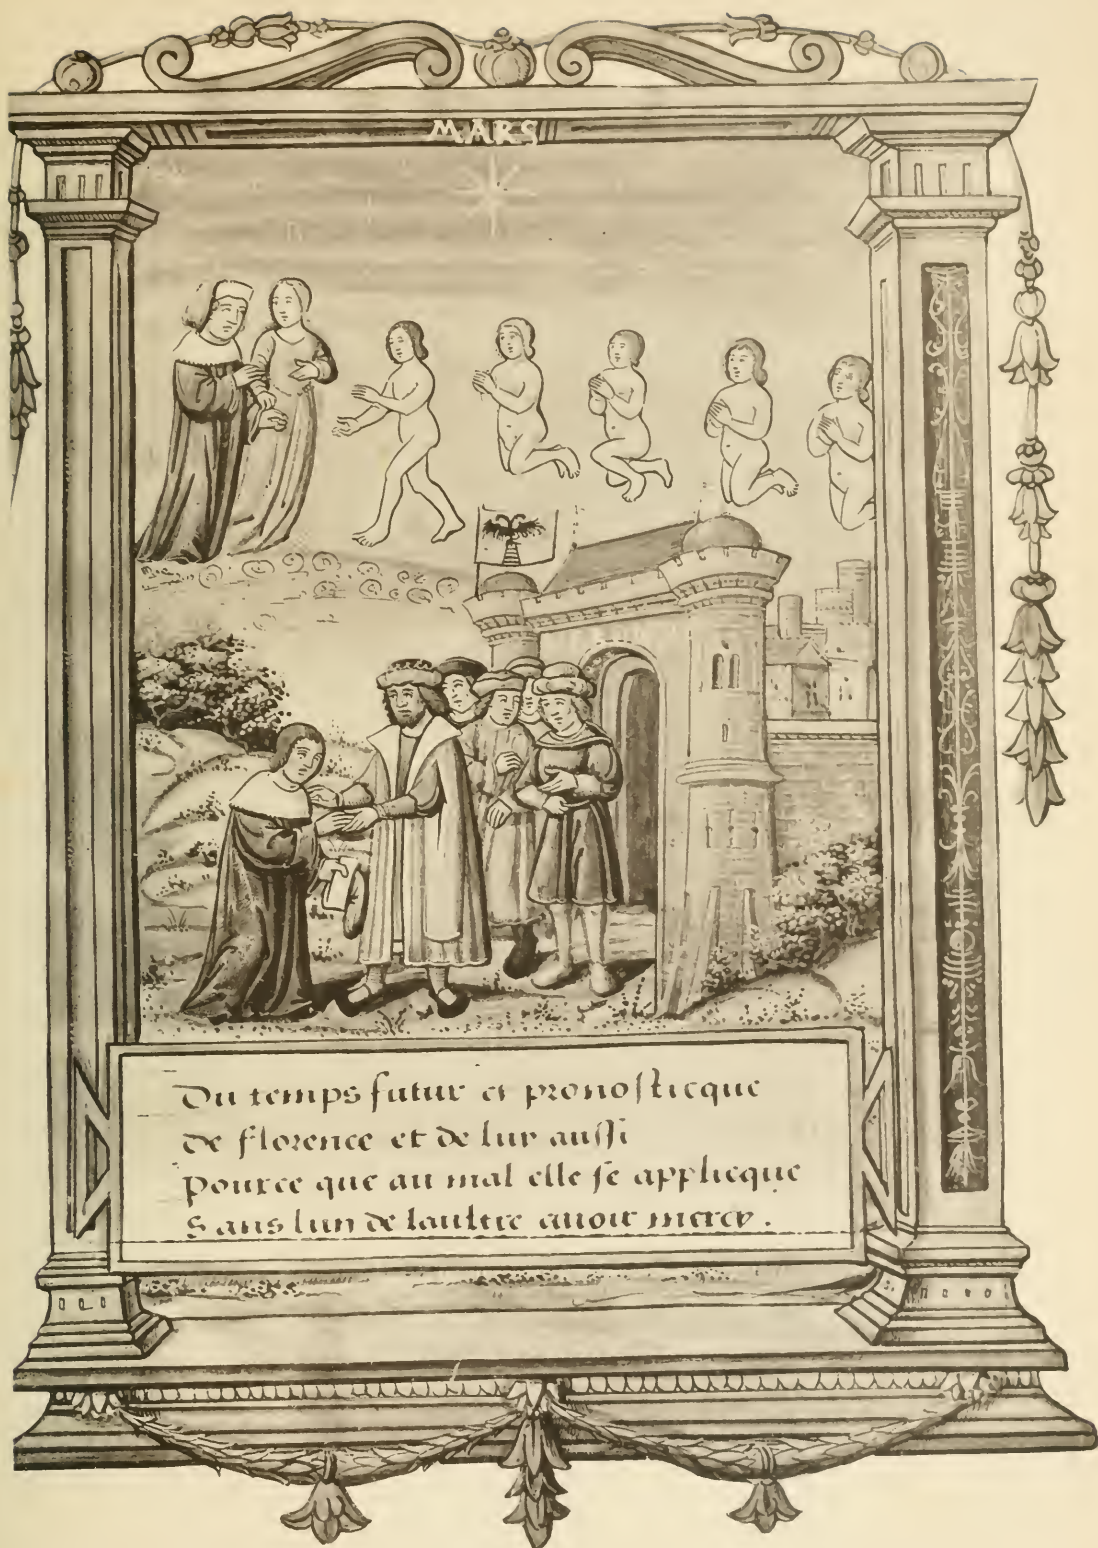 MARS
Du temps futur et pronosticque
de florence et de luy aussi
Pource que au mal elle se applicque
Sans lun de laultre avoir mercy.